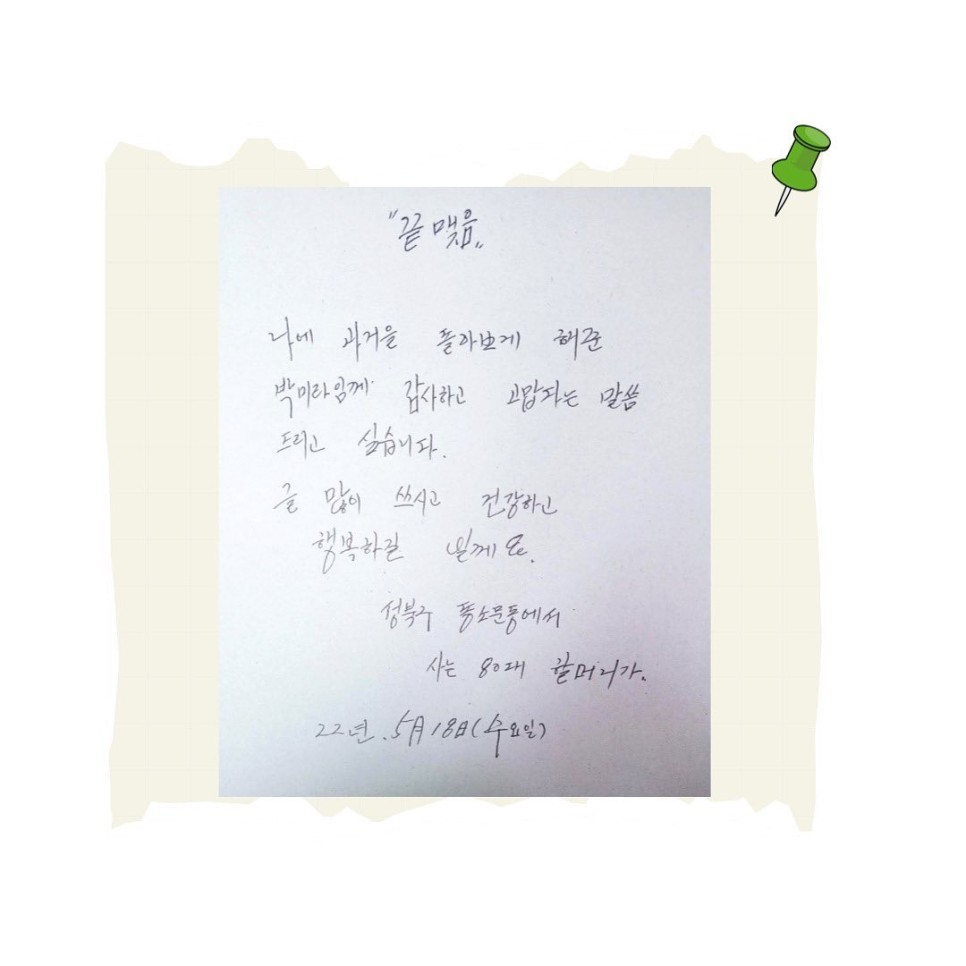 "끝맺음"
나에 과거을 돌아보게 해준
박미라임께 감사하고 고맙다는 말씀
드리고 싶습니다.
글 많이 쓰시고 건강하고
행복하길 빌께요.
성북구 동소문동에서
사는 80대 할머니가.
22년.5月18日(수요일)